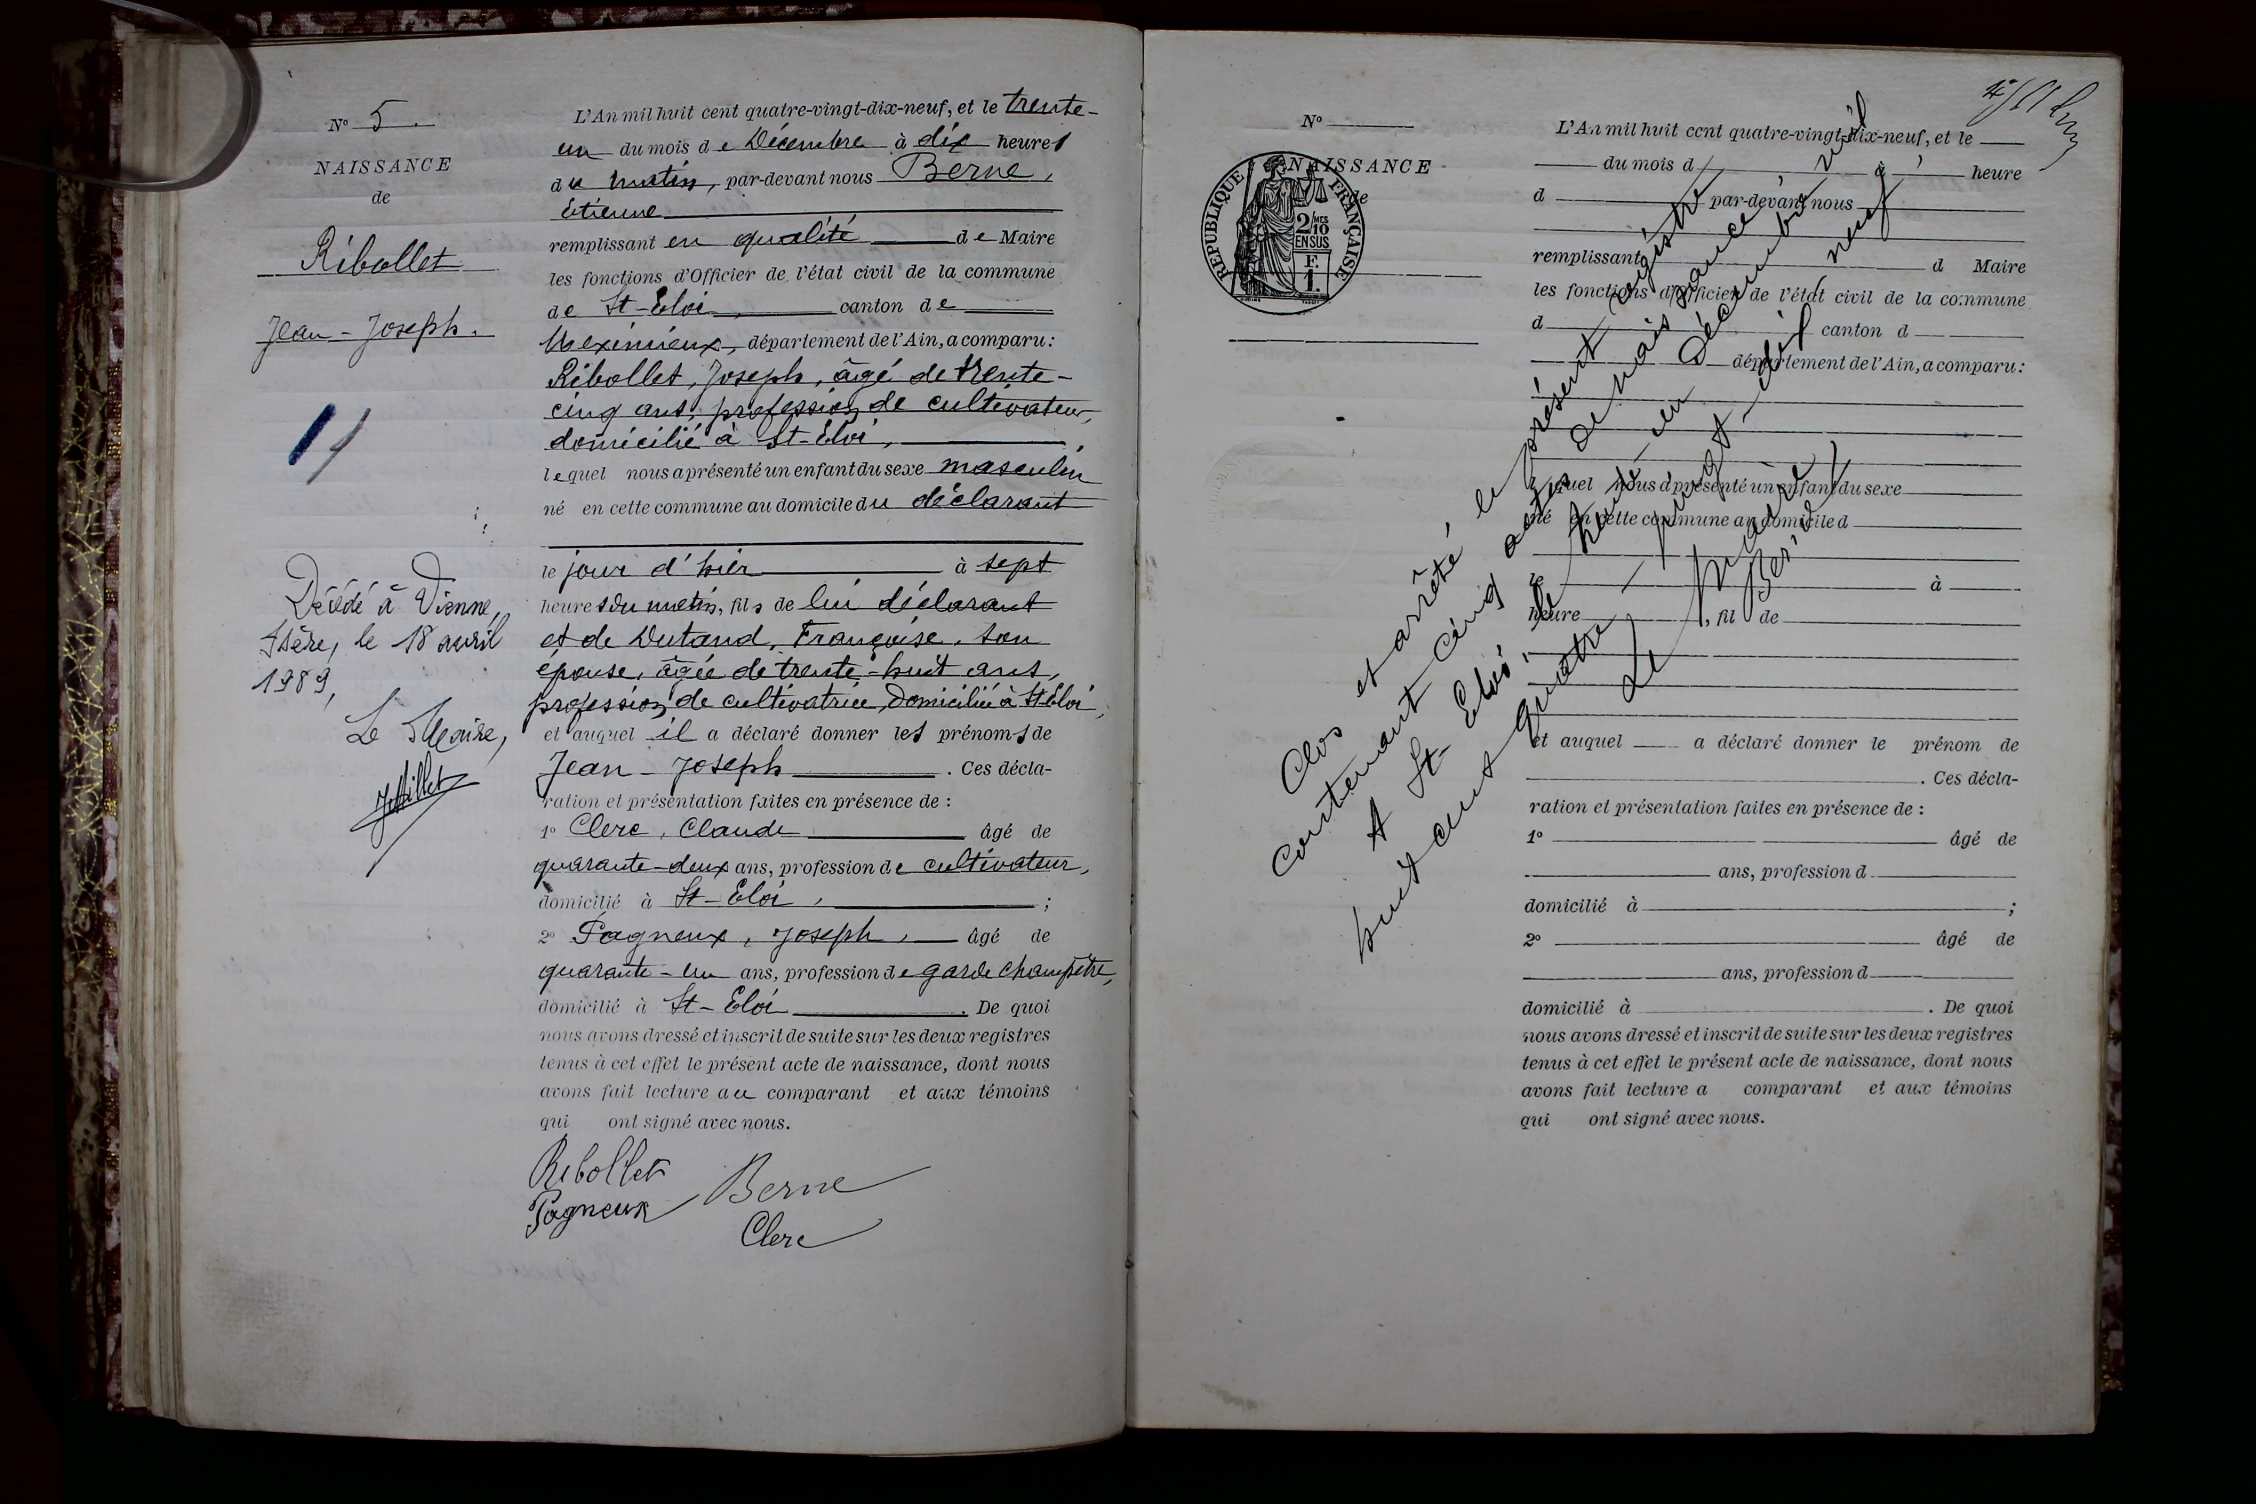 N° 5.
NAISSANCE
de
Ribollet
Jean-Joseph.
Décédé à Vienne,
Isère, le 18 avril
1989,
Le Maire,
L'An mil huit cent quatre-vingt-dix-neuf, et le trente-
un du mois de Décembre à dix heures
du matin, par-devant nous Berne,
Etienne
remplissant en qualité de Maire
les fonctions d'Officier de l'état civil de la commune
de St-Eloi, canton de
Meximieux, département de l'Ain, a comparu:
Ribollet, Joseph, âgé de trente-
cinq ans, profession de cultivateur,
domicilié à St-Eloi,
lequel nous a présenté un enfant du sexe masculin
né en cette commune au domicile du déclarant
le jour d'hier à sept
heures du matin, fils de lui déclarant
et de Dutand, Françoise, son
épouse, âgée de trente-huit ans,
profession de cultivatrice, domiciliée à St Eloi,
et auquel il a déclaré donner les prénoms de
Jean-Joseph. Ces décla-
ration et présentation faites en présence de :
1° Clerc, Claude âgé de
quarante-deux ans, profession de cultivateur,
domicilié à St-Eloi, ;
2° Pagneux, Joseph, âgé de
quarante-un ans, profession de garde champêtre,
domicilié à St-Eloi. De quoi
nous avons dressé et inscrit de suite sur les deux registres
tenus à cet effet le présent acte de naissance, dont nous
avons fait lecture au comparant et aux témoins
qui ont signé avec nous.
Ribollet
Pagneux Berne
Clerc
N°
NAISSANCE
de
RÉPUBLIQUE FRANÇAISE
2/10 MES
EN SUS
F.
1.
L'An mil huit cent quatre-vingt-dix-neuf, et le
du mois d à heure
d par-devant nous
remplissant d Maire
les fonctions d'Officier de l'état civil de la commune
d canton d
département de l'Ain, a comparu:
lequel nous a présenté un enfant du sexe
né en cette commune au domicile d
le à
heure , fil de
et auquel a déclaré donner le prénom de
. Ces décla-
ration et présentation faites en présence de :
1° âgé de
ans, profession d
domicilié à ;
2° âgé de
ans, profession d
domicilié à . De quoi
nous avons dressé et inscrit de suite sur les deux registres
tenus à cet effet le présent acte de naissance, dont nous
avons fait lecture a comparant et aux témoins
qui ont signé avec nous.
Clos et arrêté le présent registre
contenant cinq actes de naissance,
A St-Eloi, le trente-un Décembre mil
huit cent quatre-vingt-dix-neuf
Le Maire
Berne